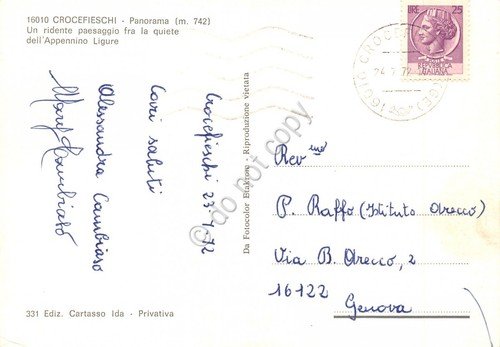 16010 CROCEFIESCHI - Panorama (m. 742)
Un ridente paesaggio fra la quiete
dell'Appennino Ligure
LIRE 25
REPUBBLICA
ITALIANA
16010 CROCEFIESCHI (GE)
24.7.72
Crocefieschi 23-7-72
Cari saluti
Alessandra Cambiaso
Mary Cambiaso
Da Fotocolor Etakrose - Riproduzione vietata
© do not copy
Rev.mo
P. Raffo (Istituto Arecco)
Via B. Arecco, 2
16122
Genova
331 Ediz. Cartasso Ida - Privativa